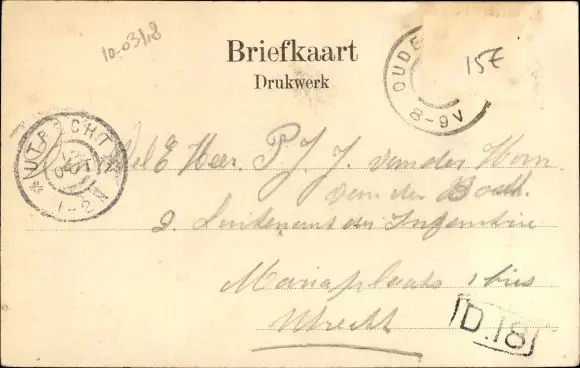 10-03/18
Briefkaart
Drukwerk
15€
OUDE
8-9V
UTRECHT
OCT
1-2N
WelE Heer. P. J. J. van der Horn
van der
2. Luitenant der Infanterie
Mariaplaats 1 bis
Utrecht
D.18